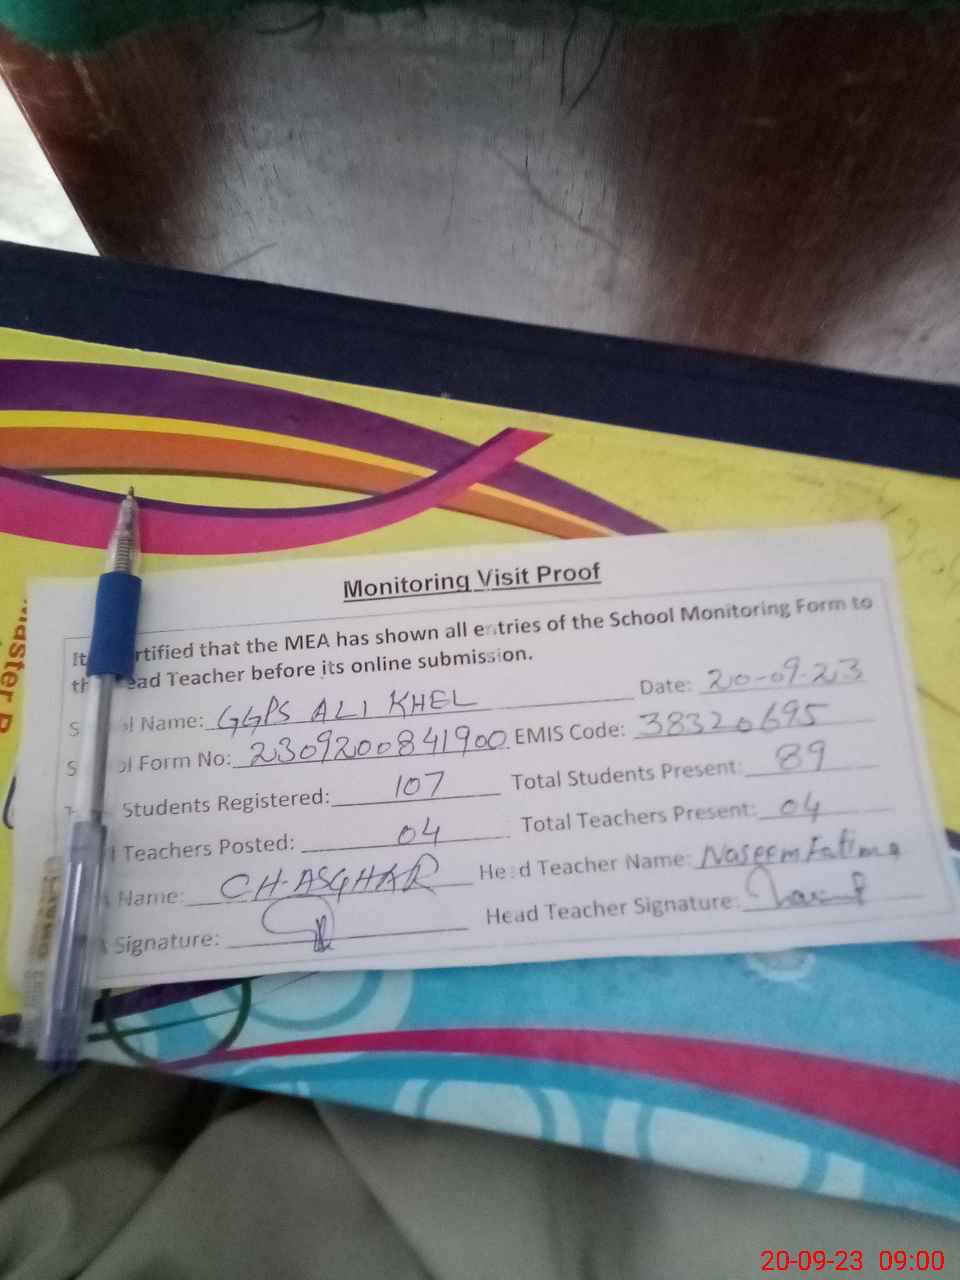 Monitoring Visit Proof
It rtified that the MEA has shown all entries of the School Monitoring Form to
th ead Teacher before its online submission.
S ol Name: GGPS ALI KHEL Date: 20-09-23
S ol Form No: 2309200841900 EMIS Code: 38320695
Students Registered: 107 Total Students Present: 89
l Teachers Posted: 04 Total Teachers Present: 04
A Name: CH-ASGHAR Head Teacher Name: Naseem Fatima
A Signature: Head Teacher Signature:
Master
20-09-23 09:00